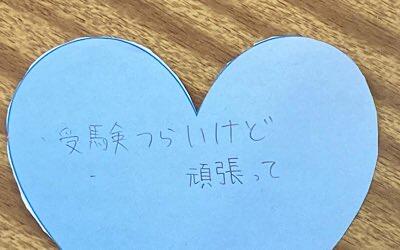 受験つらいけど
頑張って